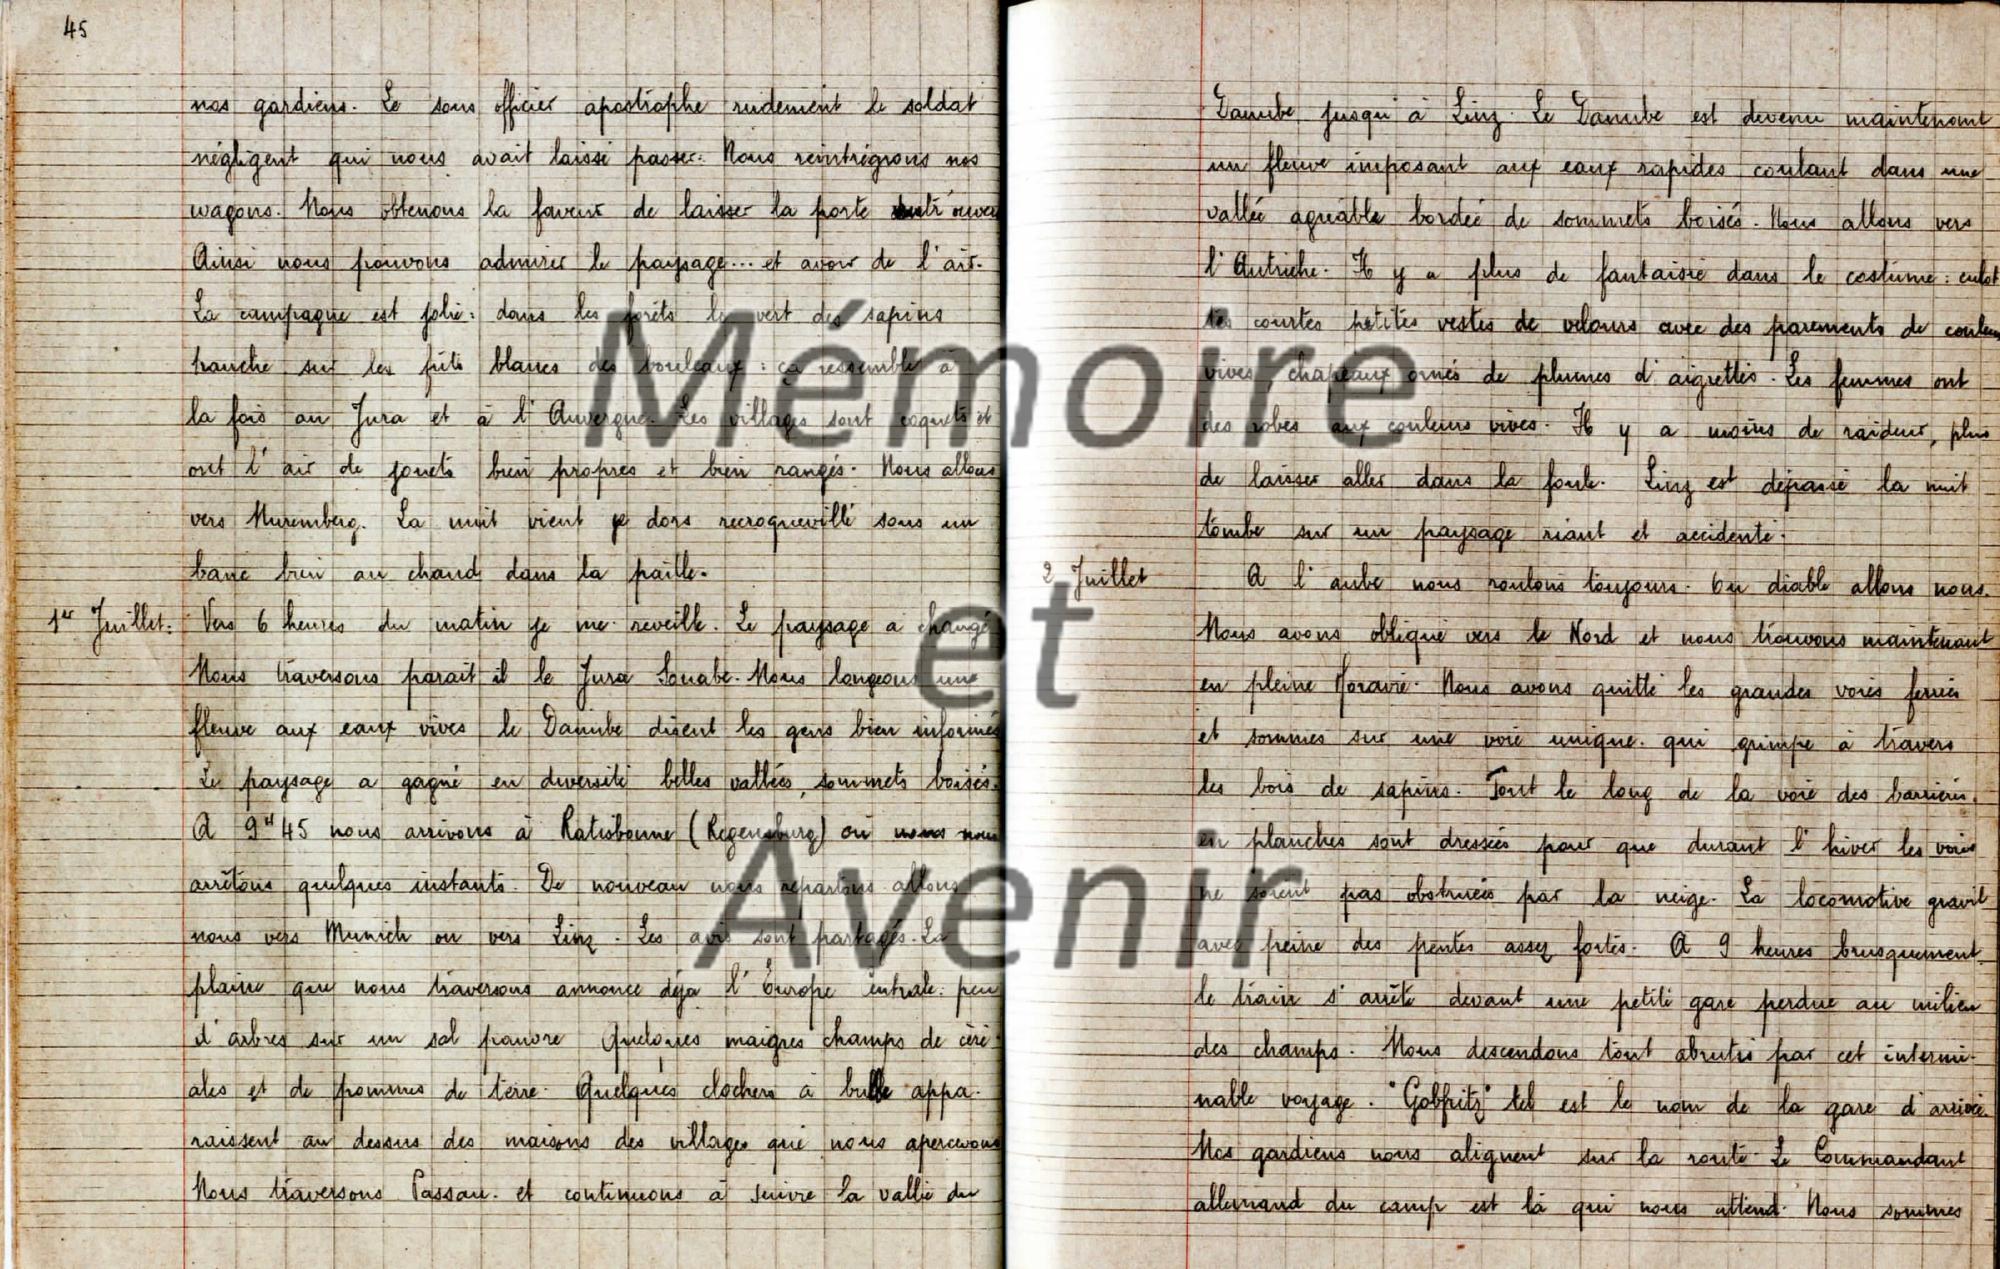 45
nos gardiens. Le sous officier apostrophe rudement le soldat
négligent qui nous avait laissé passer. Nous reintrégrons nos
wagons. Nous obtenons la faveur de laisser la porte entr'ouver
Ainsi nous pouvons admirer le paysage... et avoir de l'air.
La campagne est jolie: dans les forêts le vert des sapins
tranche sur les fûts blancs des bouleaux: ça ressemble à
la fois au Jura et à l'Auvergne. Les villages sont coquets et
ont l'air de jouets bien propres et bien rangés. Nous allons
vers Nuremberg. La nuit vient je dors recroquevillé sous un
banc bien au chaud dans la paille.
1er Juillet: Vers 6 heures du matin je me reveille. Le paysage a changé
Nous traversons parait il le Jura Souabe. Nous longeons une
fleuve aux eaux vives le Danube disent les gens bien informés
Le paysage a gagné en diversité belles vallées, sommets boisés.
A 9H45 nous arrivons à Ratisbonne (Regensburg) où nous nous
arrêtons quelques instants. De nouveau nous repartons. allons
nous vers Munich ou vers Linz. Les avis sont partagés. La
plaine que nous traversons annonce déja l'Europe centrale: peu
d'arbres sur un sol pauvre Quelques maigres champs de céré-
ales et de pommes de terre. Quelques clochers à bulbe appa-
raissent au dessus des maisons des villages que nous apercevons
Nous traversons Passau. et continuons à suivre la vallée du
Danube jusqu'à Linz. Le Danube est devenu maintenant
un fleuve imposant aux eaux rapides coulant dans une
vallée agréable bordée de sommets boisés. Nous allons vers
l'Autriche. Il y a plus de fantaisie dans le costume: culot
tes courtes petites vestes de velours avec des parements de couleur
vives, chapeaux ornés de plumes d'aigrettes. Les femmes ont
des robes aux couleurs vives. Il y a moins de raideur, plus
de laisser aller dans la foule. Linz est dépassé la nuit
tombe sur un paysage riant et accidenté.
2 Juillet A l'aube nous roulons toujours. Ou diable allons nous.
Nous avons obliqué vers le Nord et nous trouvons maintenant
en pleine Moravie. Nous avons quitté les grandes voies ferrées
et sommes sur une voie unique. qui grimpe à travers
les bois de sapins. Tout le long de la voie des barrières
en planches sont dressées pour que durant l'hiver les voies
ne soient pas obstruées par la neige. La locomotive gravit
avec peine des pentes assez fortes. A 9 heures brusquement
le train s'arrête devant une petite gare perdue au milieu
des champs. Nous descendons tout abrutis par cet intermi-
nable voyage. "Gobfritz" tel est le nom de la gare d'arrivée.
Nos gardiens nous alignent sur la route. Le Commandant
allemand du camp est là qui nous attend. Nous sommes
Mémoire
et
Avenir